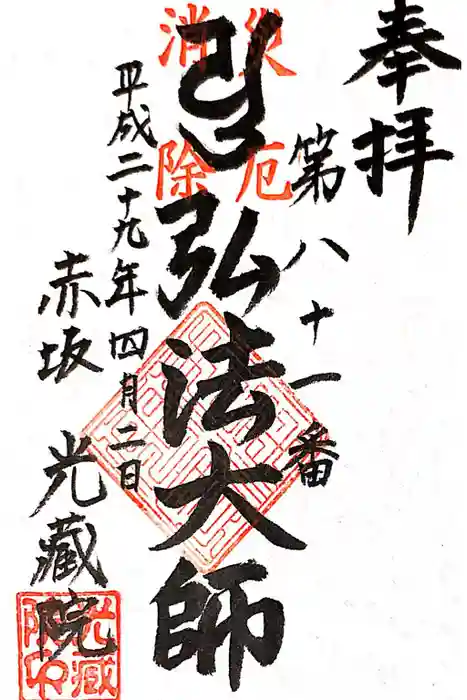 奉拝
第八十一番
災厄
消除
弘法大師
平成二十九年四月二日
赤坂 光蔵院